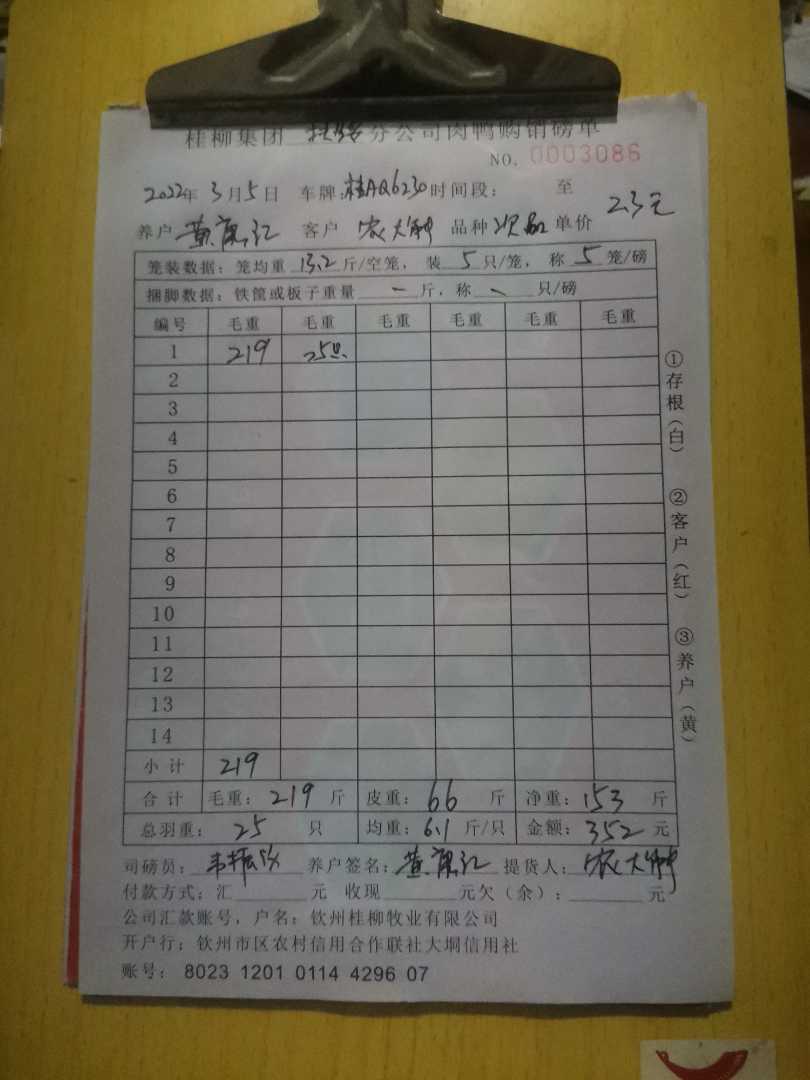 桂柳集团 分公司肉鸭购销磅单
NO. 0003086
2022年 3月5日 车牌:桂AQ6230 时间段: 至
养户 黄 客户 农大 品种 次品 单价 2.3元
笼装数据: 笼均重 13.2 斤/空笼, 装 5 只/笼, 称 5 笼/磅
捆脚数据: 铁筐或板子重量 一 斤, 称 一 只/磅
编号 毛重 毛重 毛重 毛重 毛重 毛重
1 219 25只
2
3
4
5
6
7
8
9
10
11
12
13
14
小计 219
合计 毛重: 219 斤 皮重: 66 斤 净重: 153 斤
总羽重: 25 只 均重: 6.1 斤/只 金额: 352 元
司磅员: 韦振 养户签名: 黄 提货人: 农大
付款方式: 汇 元 收现 元欠(余): 元
公司汇款账号, 户名: 钦州桂柳牧业有限公司
开户行: 钦州市区农村信用合作联社大垌信用社
账号: 8023 1201 0114 4296 07
①存根(白) ②客户(红) ③养户(黄)